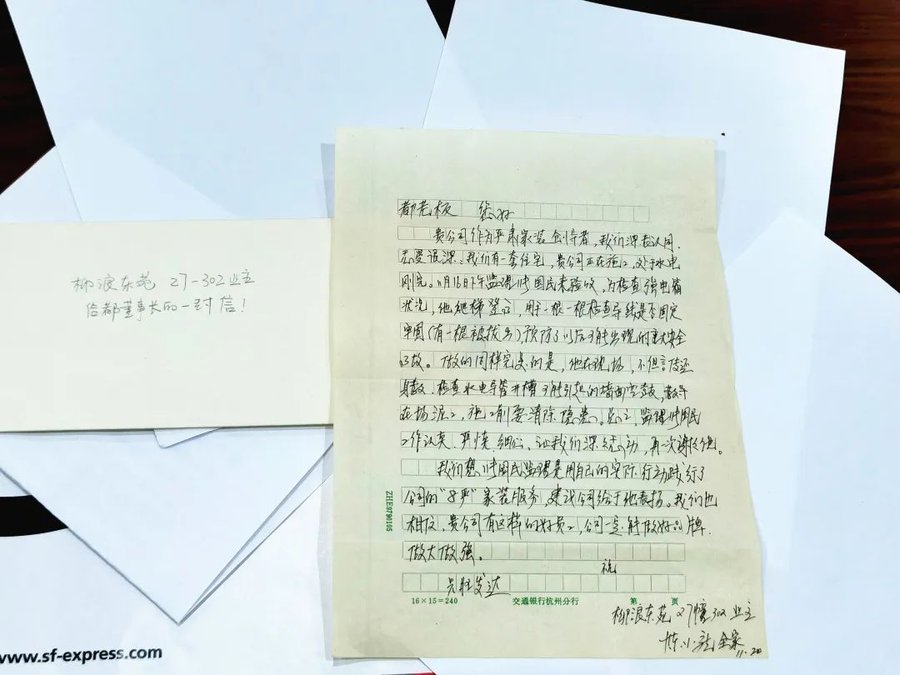 柳浪东苑 27-302业主
给都董事长的一封信!
都老板 您好
贵公司作为严肃家装创导者,我们深表认同,
我们有一套住宅,贵公司正在施工,处于水电
刚完。11月16日下午监理叶国民来验收,为检查强电箱
状况,他爬梯登高,用手一根一根检查导线是否固定
牢固(有一根被拔出),预防了以后可能出现的重大安全
事故。做的同样完美的是,他在现场,不但言传还
身教,检查水电导管开槽可能引起的墙面空鼓,教导
在场泥工,施工前要消除隐患。总之,监理叶国民
工作认真、严慎、细心、让我们深受感动,再一次谢谢他。
我们想叶国民监理是用自己的实际行动践行了
公司的“8严”家装服务,建议公司给于他表扬。我们也
相信,贵公司有这样的好员工,公司一定能做好品牌,
做大做强。
祝
兴旺发达
16×15=240 交通银行杭州分行 第 页
柳浪东苑27幢302业主
陈小龙全家
11.20
ZZIE9790105
www.sf-express.com